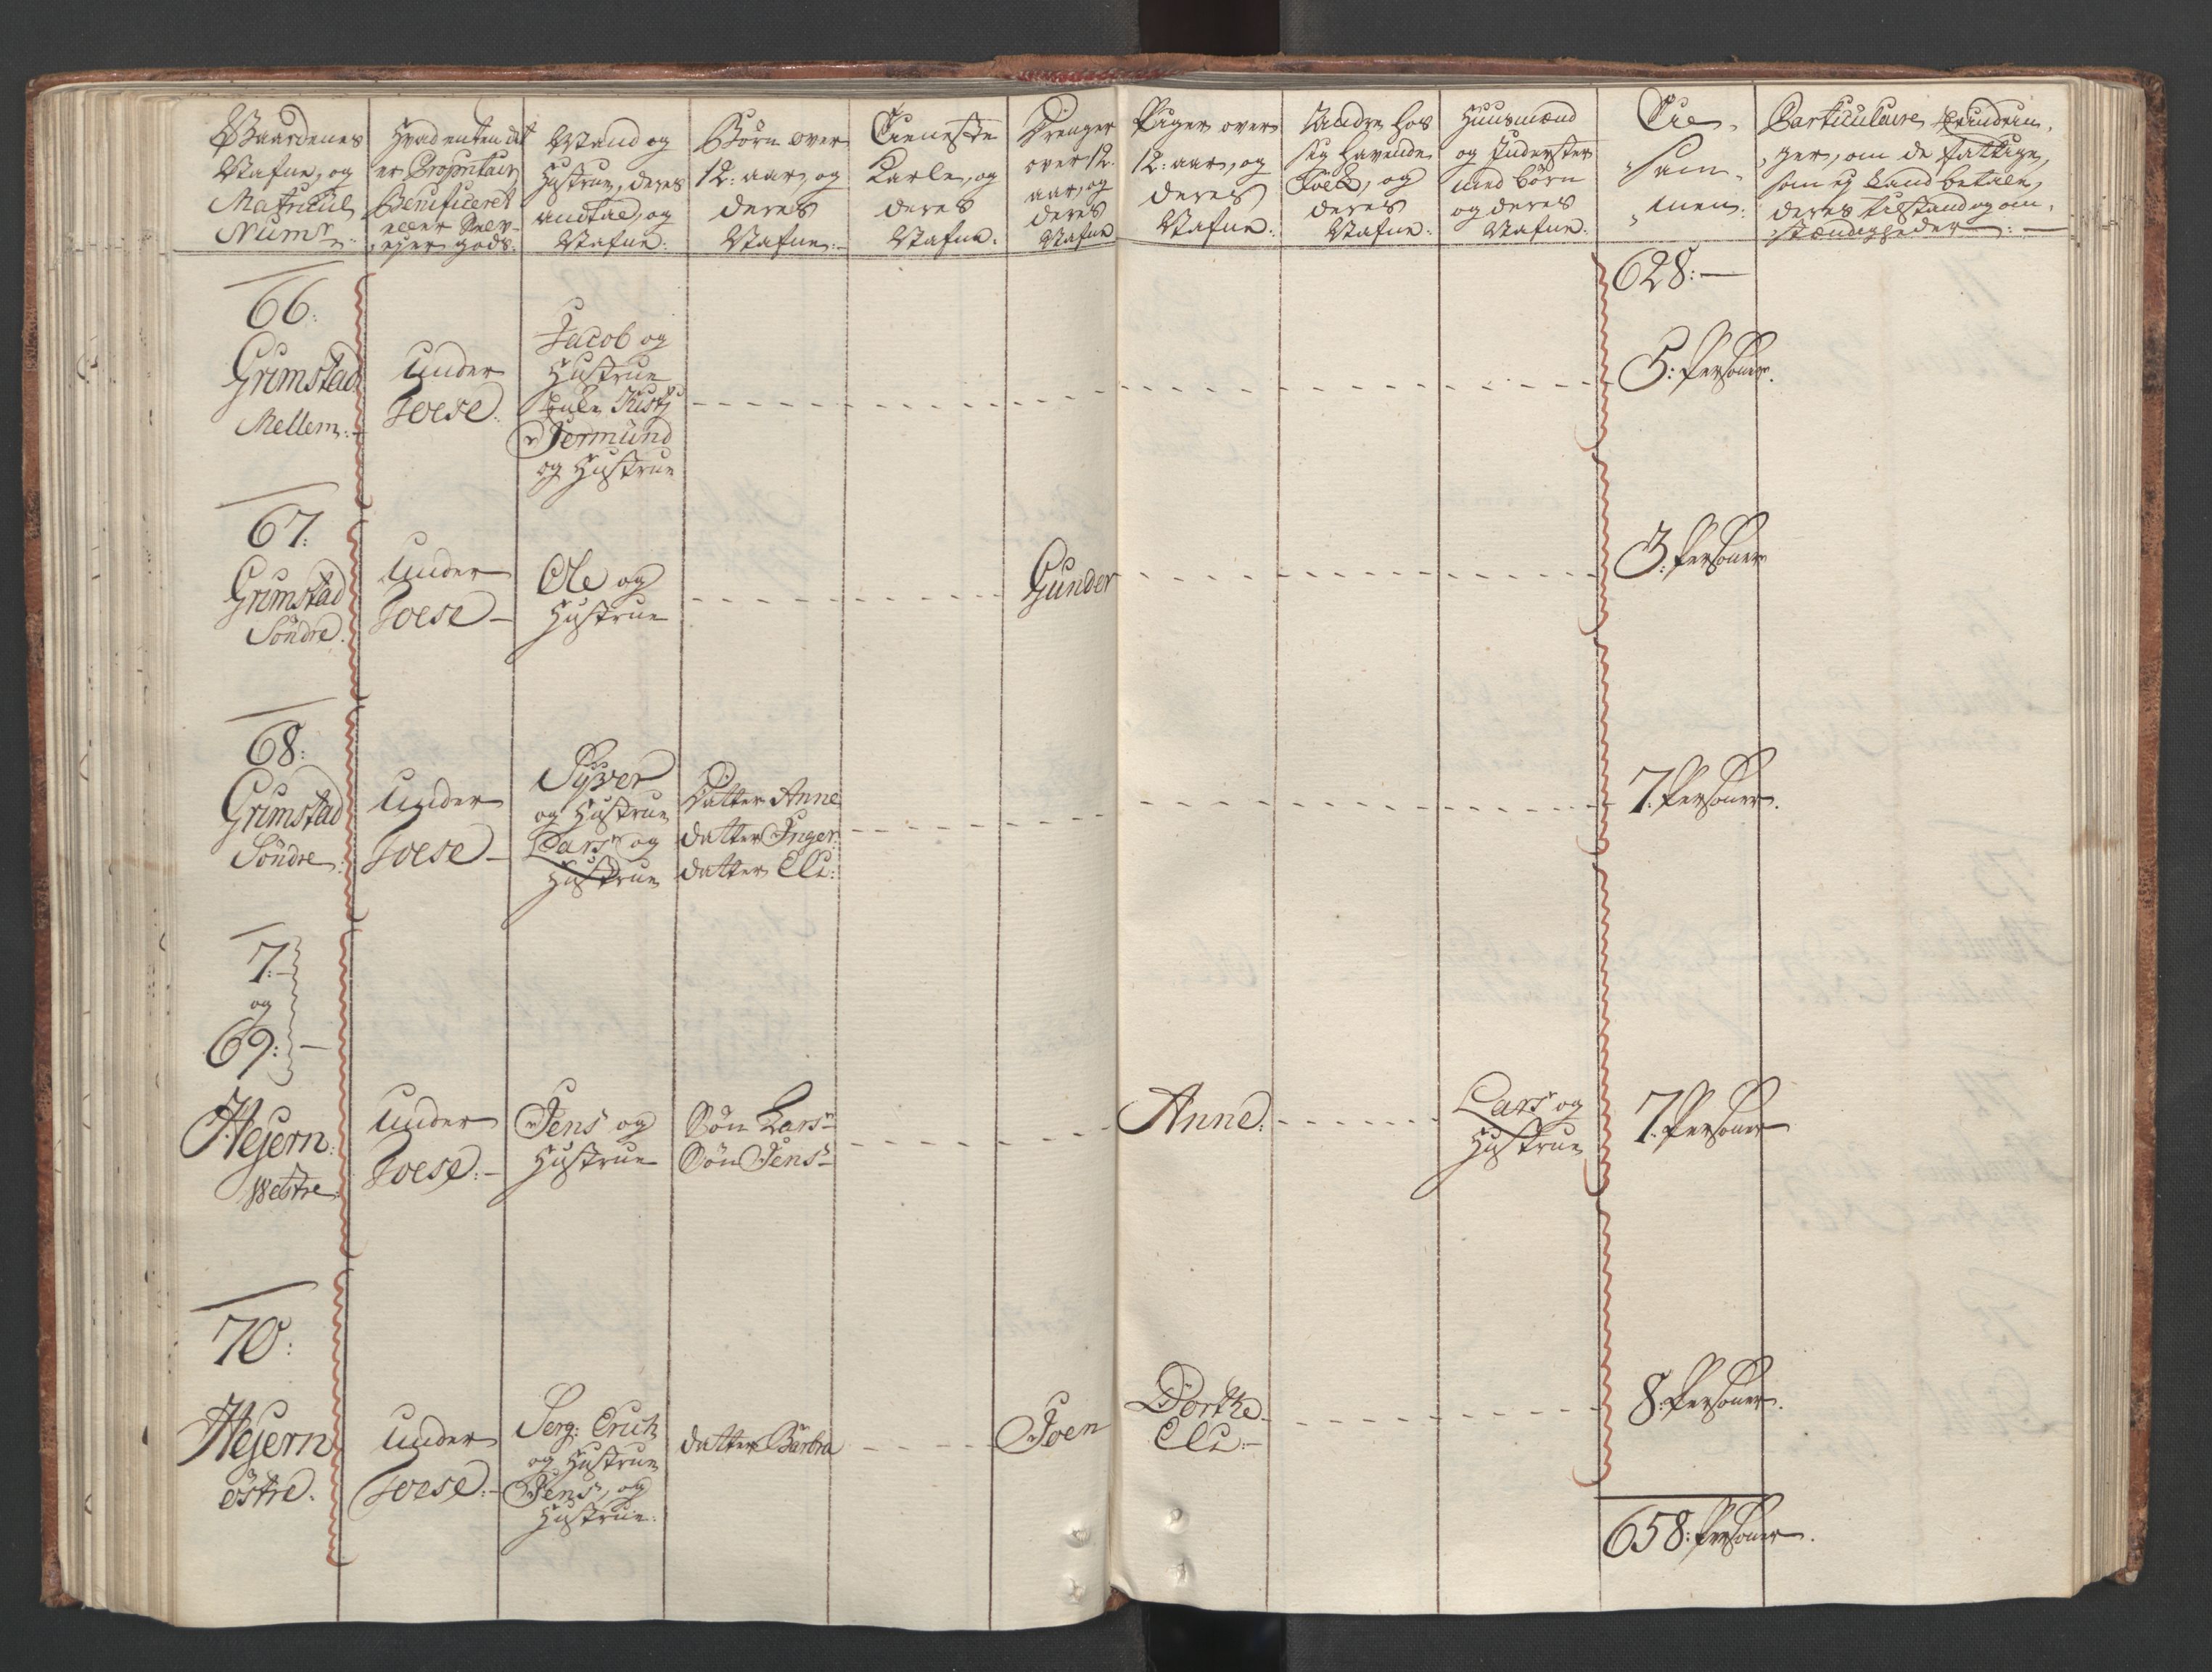 Gaardenes
Nafne, og
Matricul
Num:r
Hvad enten det
er Propritair
Benificeret
eller Selv-
ejer gods.
Mand og
Hustrue, deres
antal, og
Nafne:
Börn over
12: aar, og
deres
Nafne:
Tieneste
Karle, og
deres
Nafne.
Drenger
over 12.
aar, og
deres
Nafne
Piger over
12: aar, og
deres
Nafne:
Andre hos
sig havende
Folck, og
deres
Nafne:
Huusmænd
og Inderster
med börn
og deres
Nafne:
Tie-
sam-
men:
Particulaire
ger, om de fattige,
som ej kand betale,
deres tilstand og om-
stændigheder:
628:
66:
Grimstad
Mellem:
Under
Foese.
Jacob og
Hustrue
Jermund
og Hustrue
5: Personer.
67.
Grimstad
Söndre.
Under
Foese
Ole og
Hustrue
Gunder
3: Personer
68:
Grimstad
Söndre.
Under
Foese
Syver
og Hustrue
Lars og
Hustrue
Datter Anne
datter Inger
datter Eli:
7. Personer.
7.
og
69:
Hejern
Westre
Under
Foese:
Jens og
Hustrue
Sön Lars
Sön Jens
Anne.
Lars og
Hustrue
7. Personer
70:
Hejern
östre.
Under
Foese:
Serg: Erich
og Hustrue
Jens, og
Hustrue.
datter Barbra
Joen
Dorthe
Eli:
8. Personer.
658: Personer.